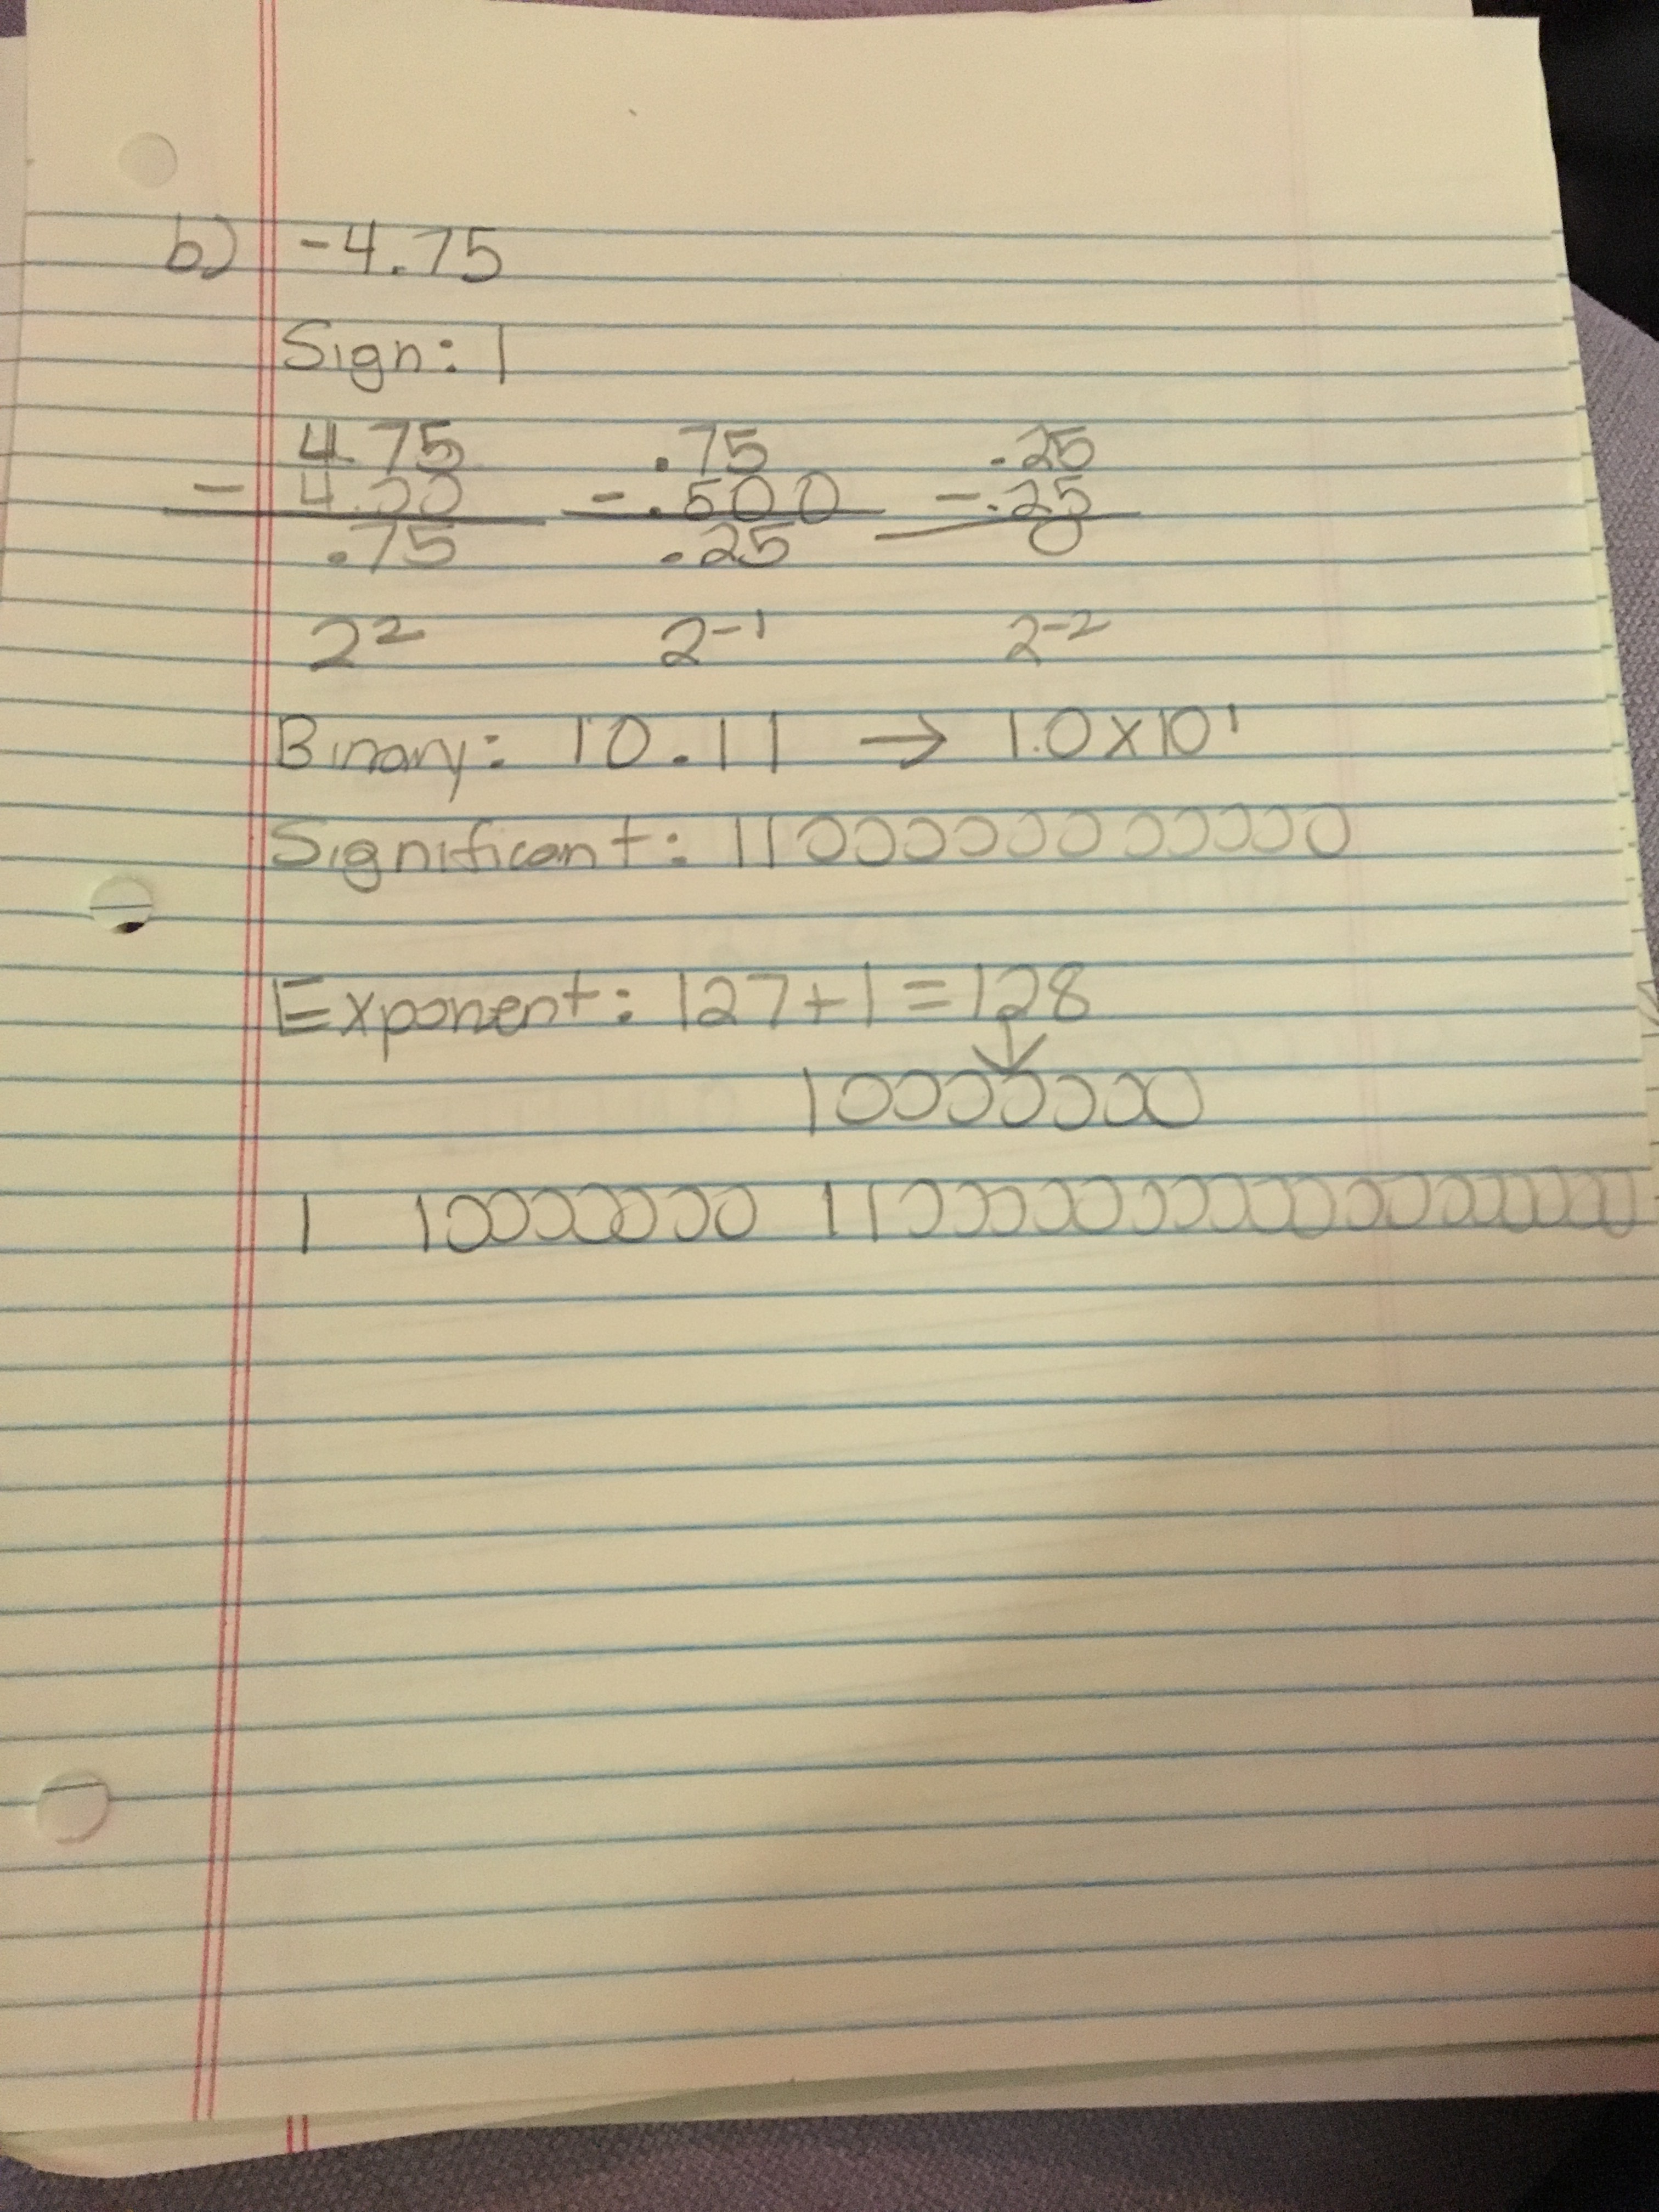 b) -4.75
Sign: 1
4.75 .75 .25
- 4.00 - .500 - .25
.75 .25 0
2² 2⁻¹ 2⁻²
Binary: 10.11 → 1.0x10¹
Significant: 11000000000000
Exponent: 127+1=128
↓
10000000
1 10000000 11000000000000000000000